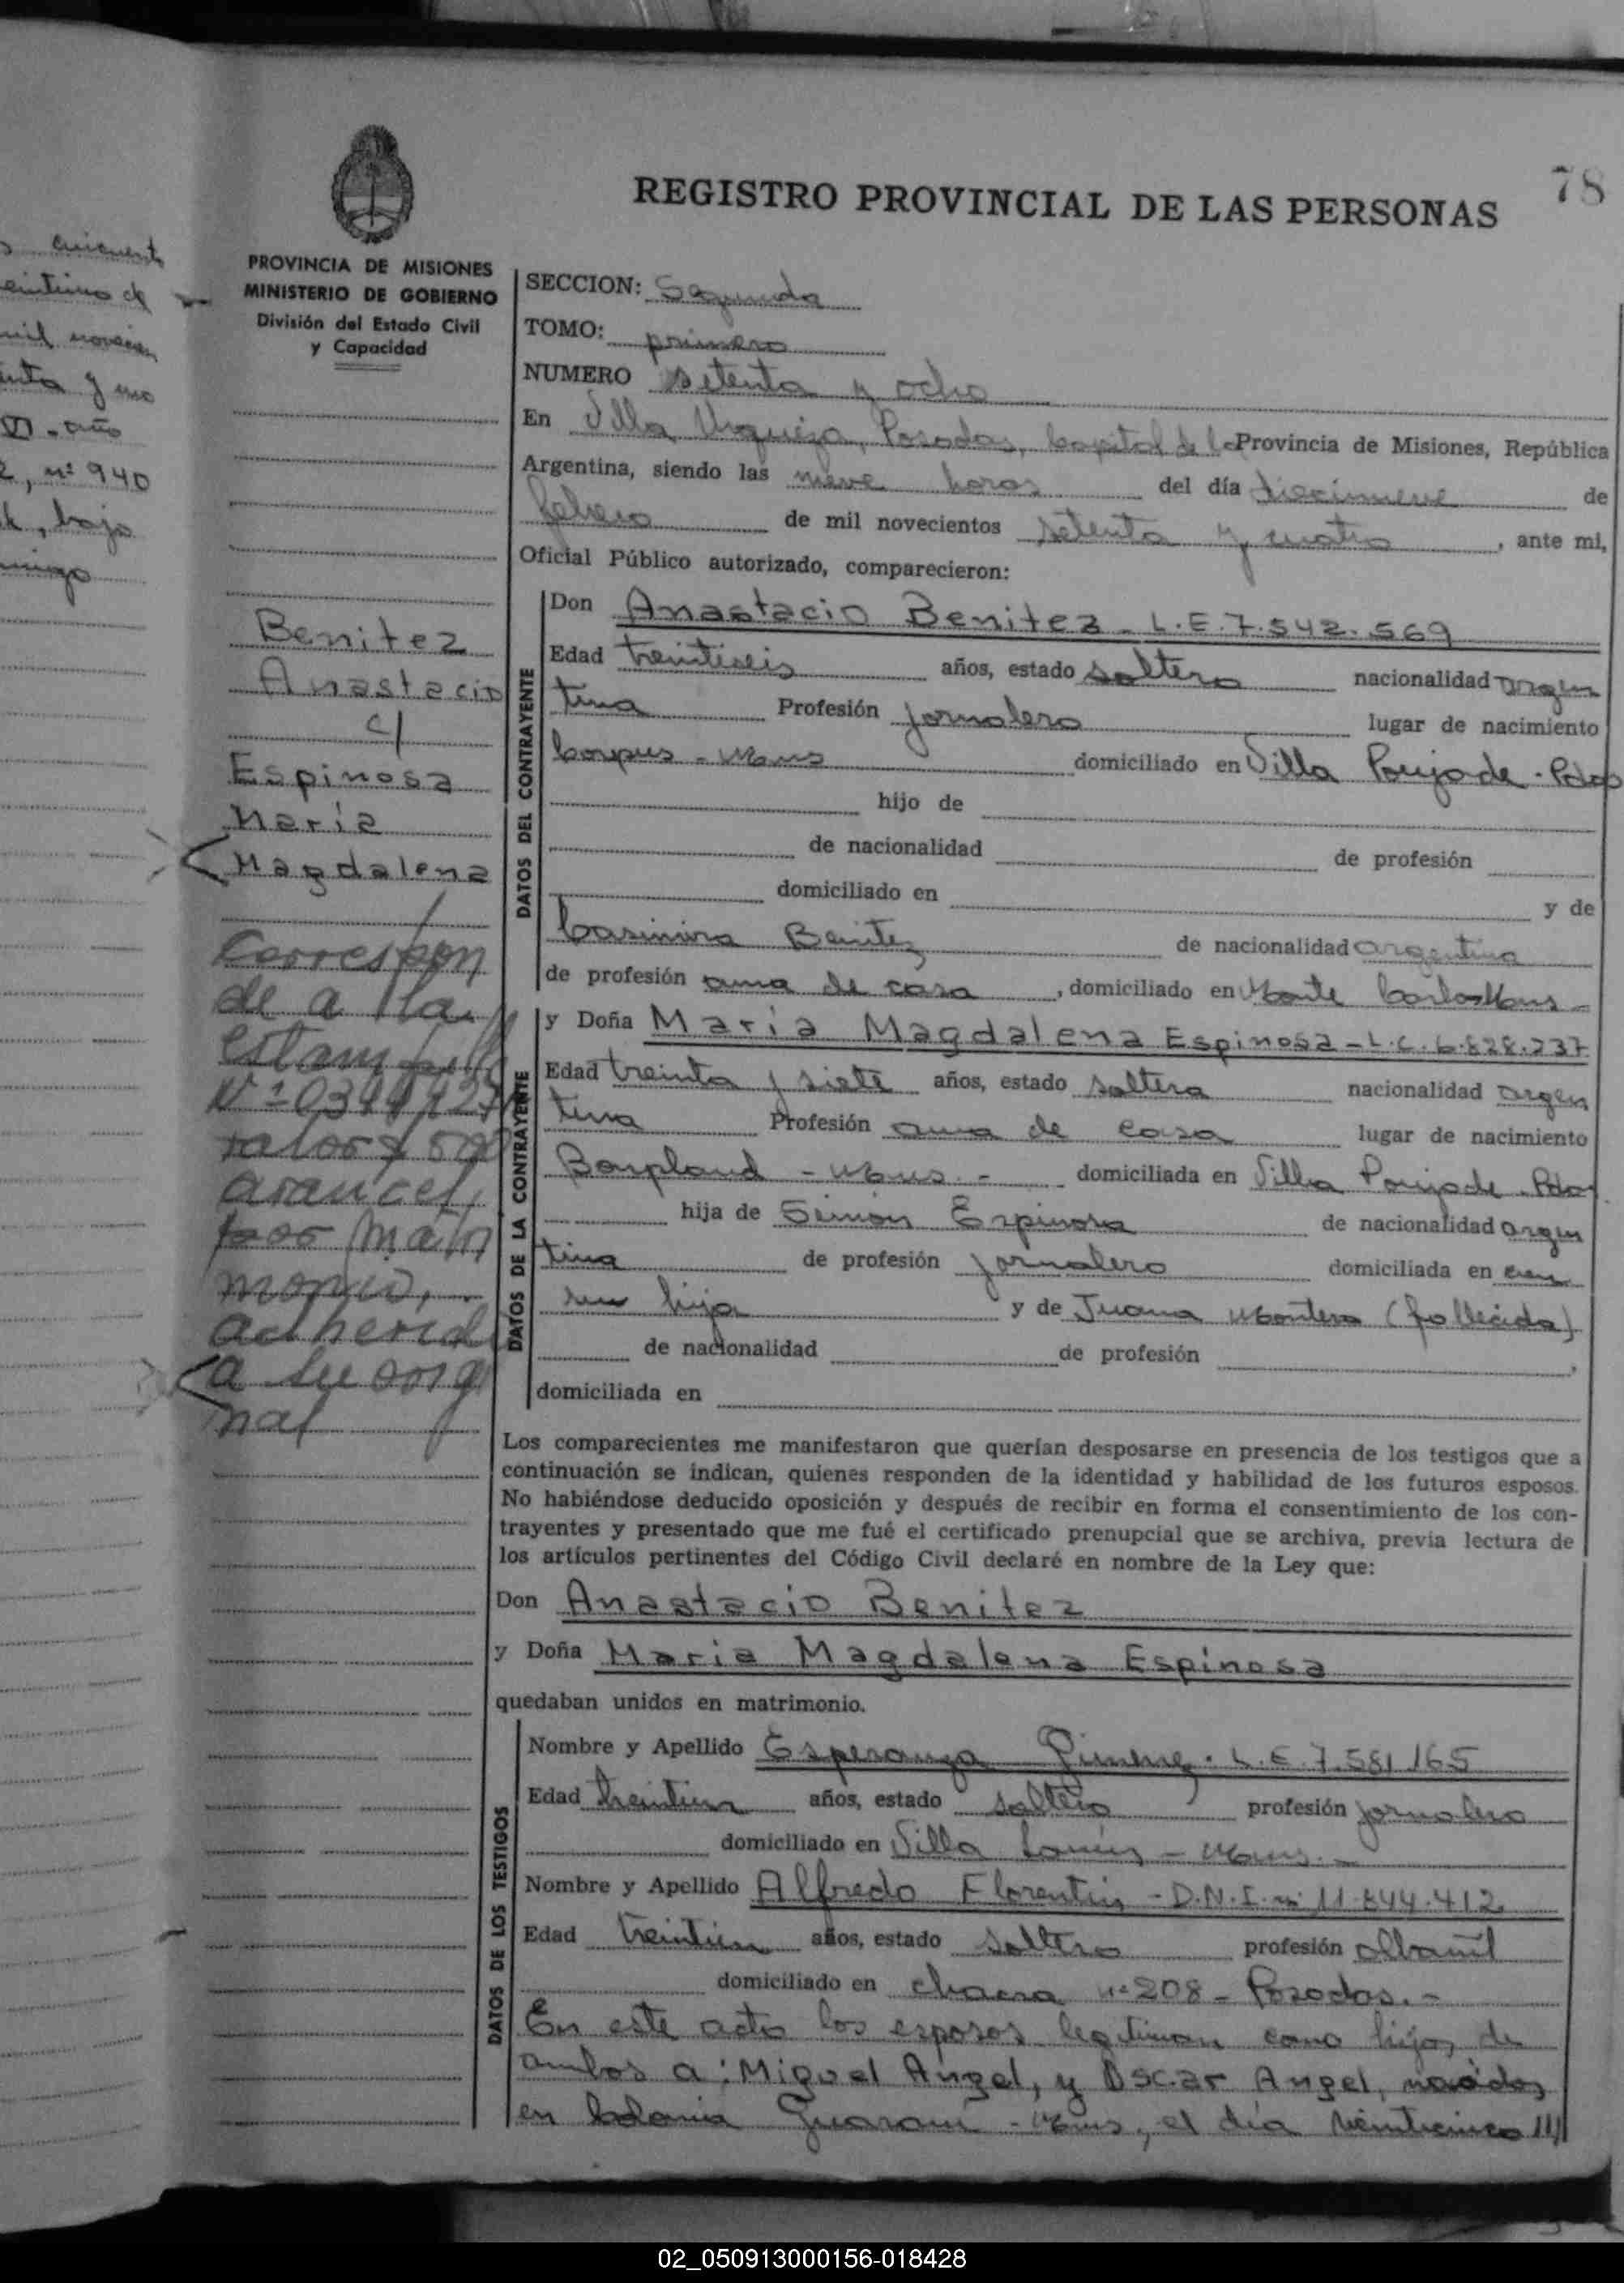 78
REGISTRO PROVINCIAL DE LAS PERSONAS
PROVINCIA DE MISIONES
MINISTERIO DE GOBIERNO
División del Estado Civil
y Capacidad
Benitez
Anastacio
c/
Espinosa
María
Magdalena
Correspon
de a la
estampilla
valor $ 500
arancel
por matri
monio,
adherid
a su origi
nal
SECCION: Segunda
TOMO: primero
NUMERO setenta y ocho
En Villa Urquiza, Posadas, Capital de la Provincia de Misiones, República
Argentina, siendo las nueve horas del día diecinueve de
febrero de mil novecientos setenta y cuatro, ante mi,
Oficial Público autorizado, comparecieron:
DATOS DEL CONTRAYENTE
Don Anastacio Benitez - L.E. 7.542.569
Edad treintiseis años, estado soltero nacionalidad argen
tina Profesión jornalero lugar de nacimiento
Corpus - Mnes domiciliado en Villa Poujade - Pdas
hijo de
de nacionalidad de profesión
domiciliado en y de
Casimira Benitez de nacionalidad argentina
de profesión ama de casa, domiciliado en Monte Carlo Mnes -
DATOS DE LA CONTRAYENTE
y Doña María Magdalena Espinosa - L.C. 6.828.237
Edad treinta y siete años, estado soltera nacionalidad argen
tina Profesión ama de casa lugar de nacimiento
Bonpland - Mnes. - domiciliada en Villa Poujade - Pdas
hija de Simón Espinosa de nacionalidad argen
tina de profesión jornalero domiciliada en con
su hija y de Juana Montero (fallecida)
de nacionalidad de profesión ,
domiciliada en
Los comparecientes me manifestaron que querían desposarse en presencia de los testigos que a
continuación se indican, quienes responden de la identidad y habilidad de los futuros esposos.
No habiéndose deducido oposición y después de recibir en forma el consentimiento de los con-
trayentes y presentado que me fué el certificado prenupcial que se archiva, previa lectura de
los artículos pertinentes del Código Civil declaré en nombre de la Ley que:
Don Anastacio Benitez
y Doña Maria Magdalena Espinosa
quedaban unidos en matrimonio.
DATOS DE LOS TESTIGOS
Nombre y Apellido Esperanza Gimenez. L.E. 7.581.165
Edad años, estado soltero profesión jornalero
domiciliado en Villa Lanús - Mnes. -
Nombre y Apellido Alfredo Florentín - D.N.I. nº 11.844.412
Edad años, estado soltero profesión albañil
domiciliado en chacra nº 208 - Posadas. -
En este acto los esposos legitiman como hijos de
ambos a: Miguel Angel, y Oscar Angel, nacidos
en Colonia Guaraní - Mnes, el día veinticinco ///
02_050913000156-018428